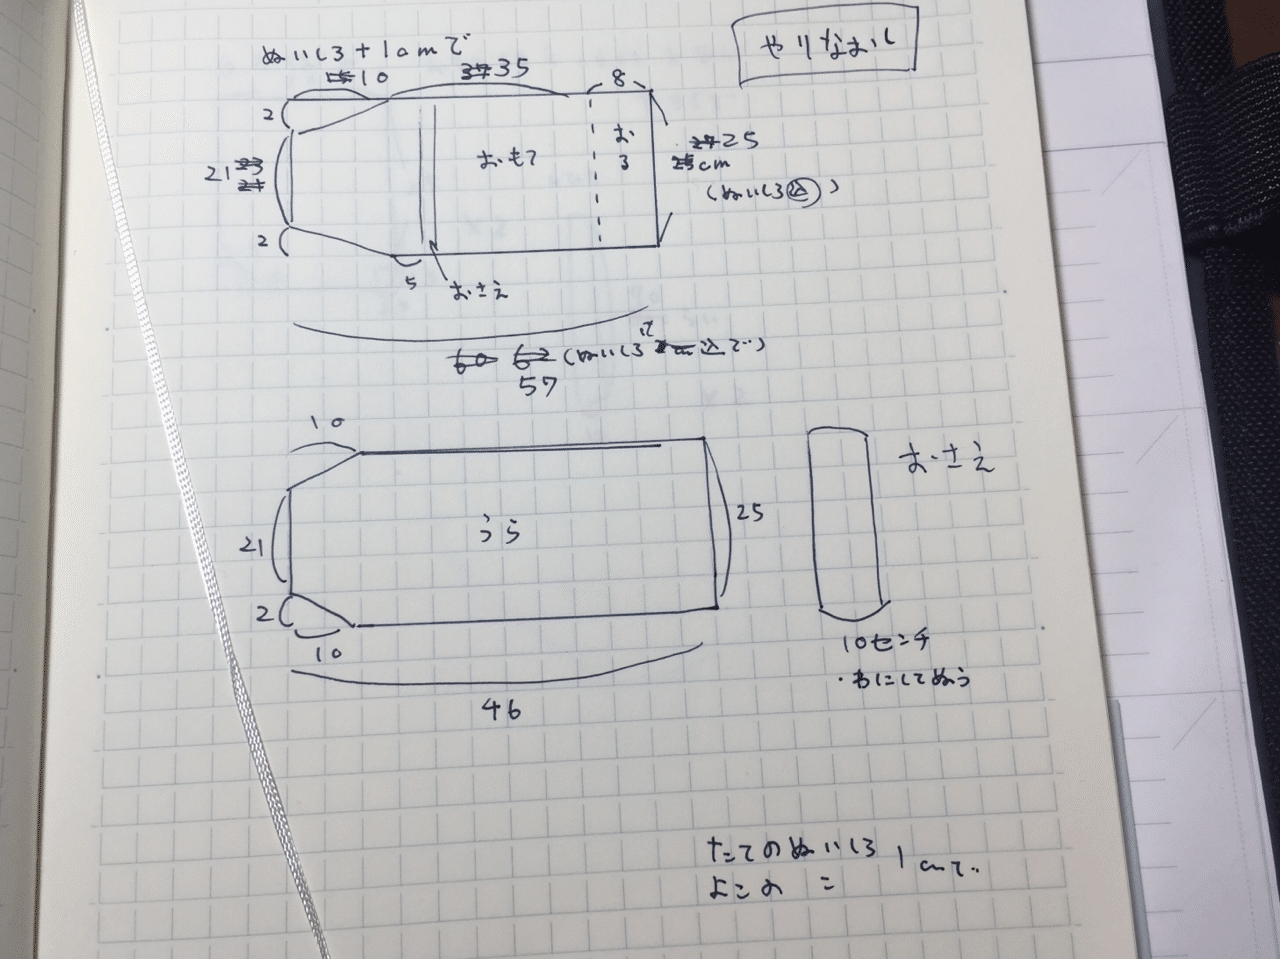 やりなおし
ぬいしろ+1cmで
10
35
8
2
おもて
お
3
25
cm
(ぬいしろ込)
21
2
5
おさえ
60 62 (ぬいしろ込で)
57
10
うら
25
21
2
10
46
おさえ
10センチ
・わにしてぬう
たてのぬいしろ 1cmで..
よこの 〃